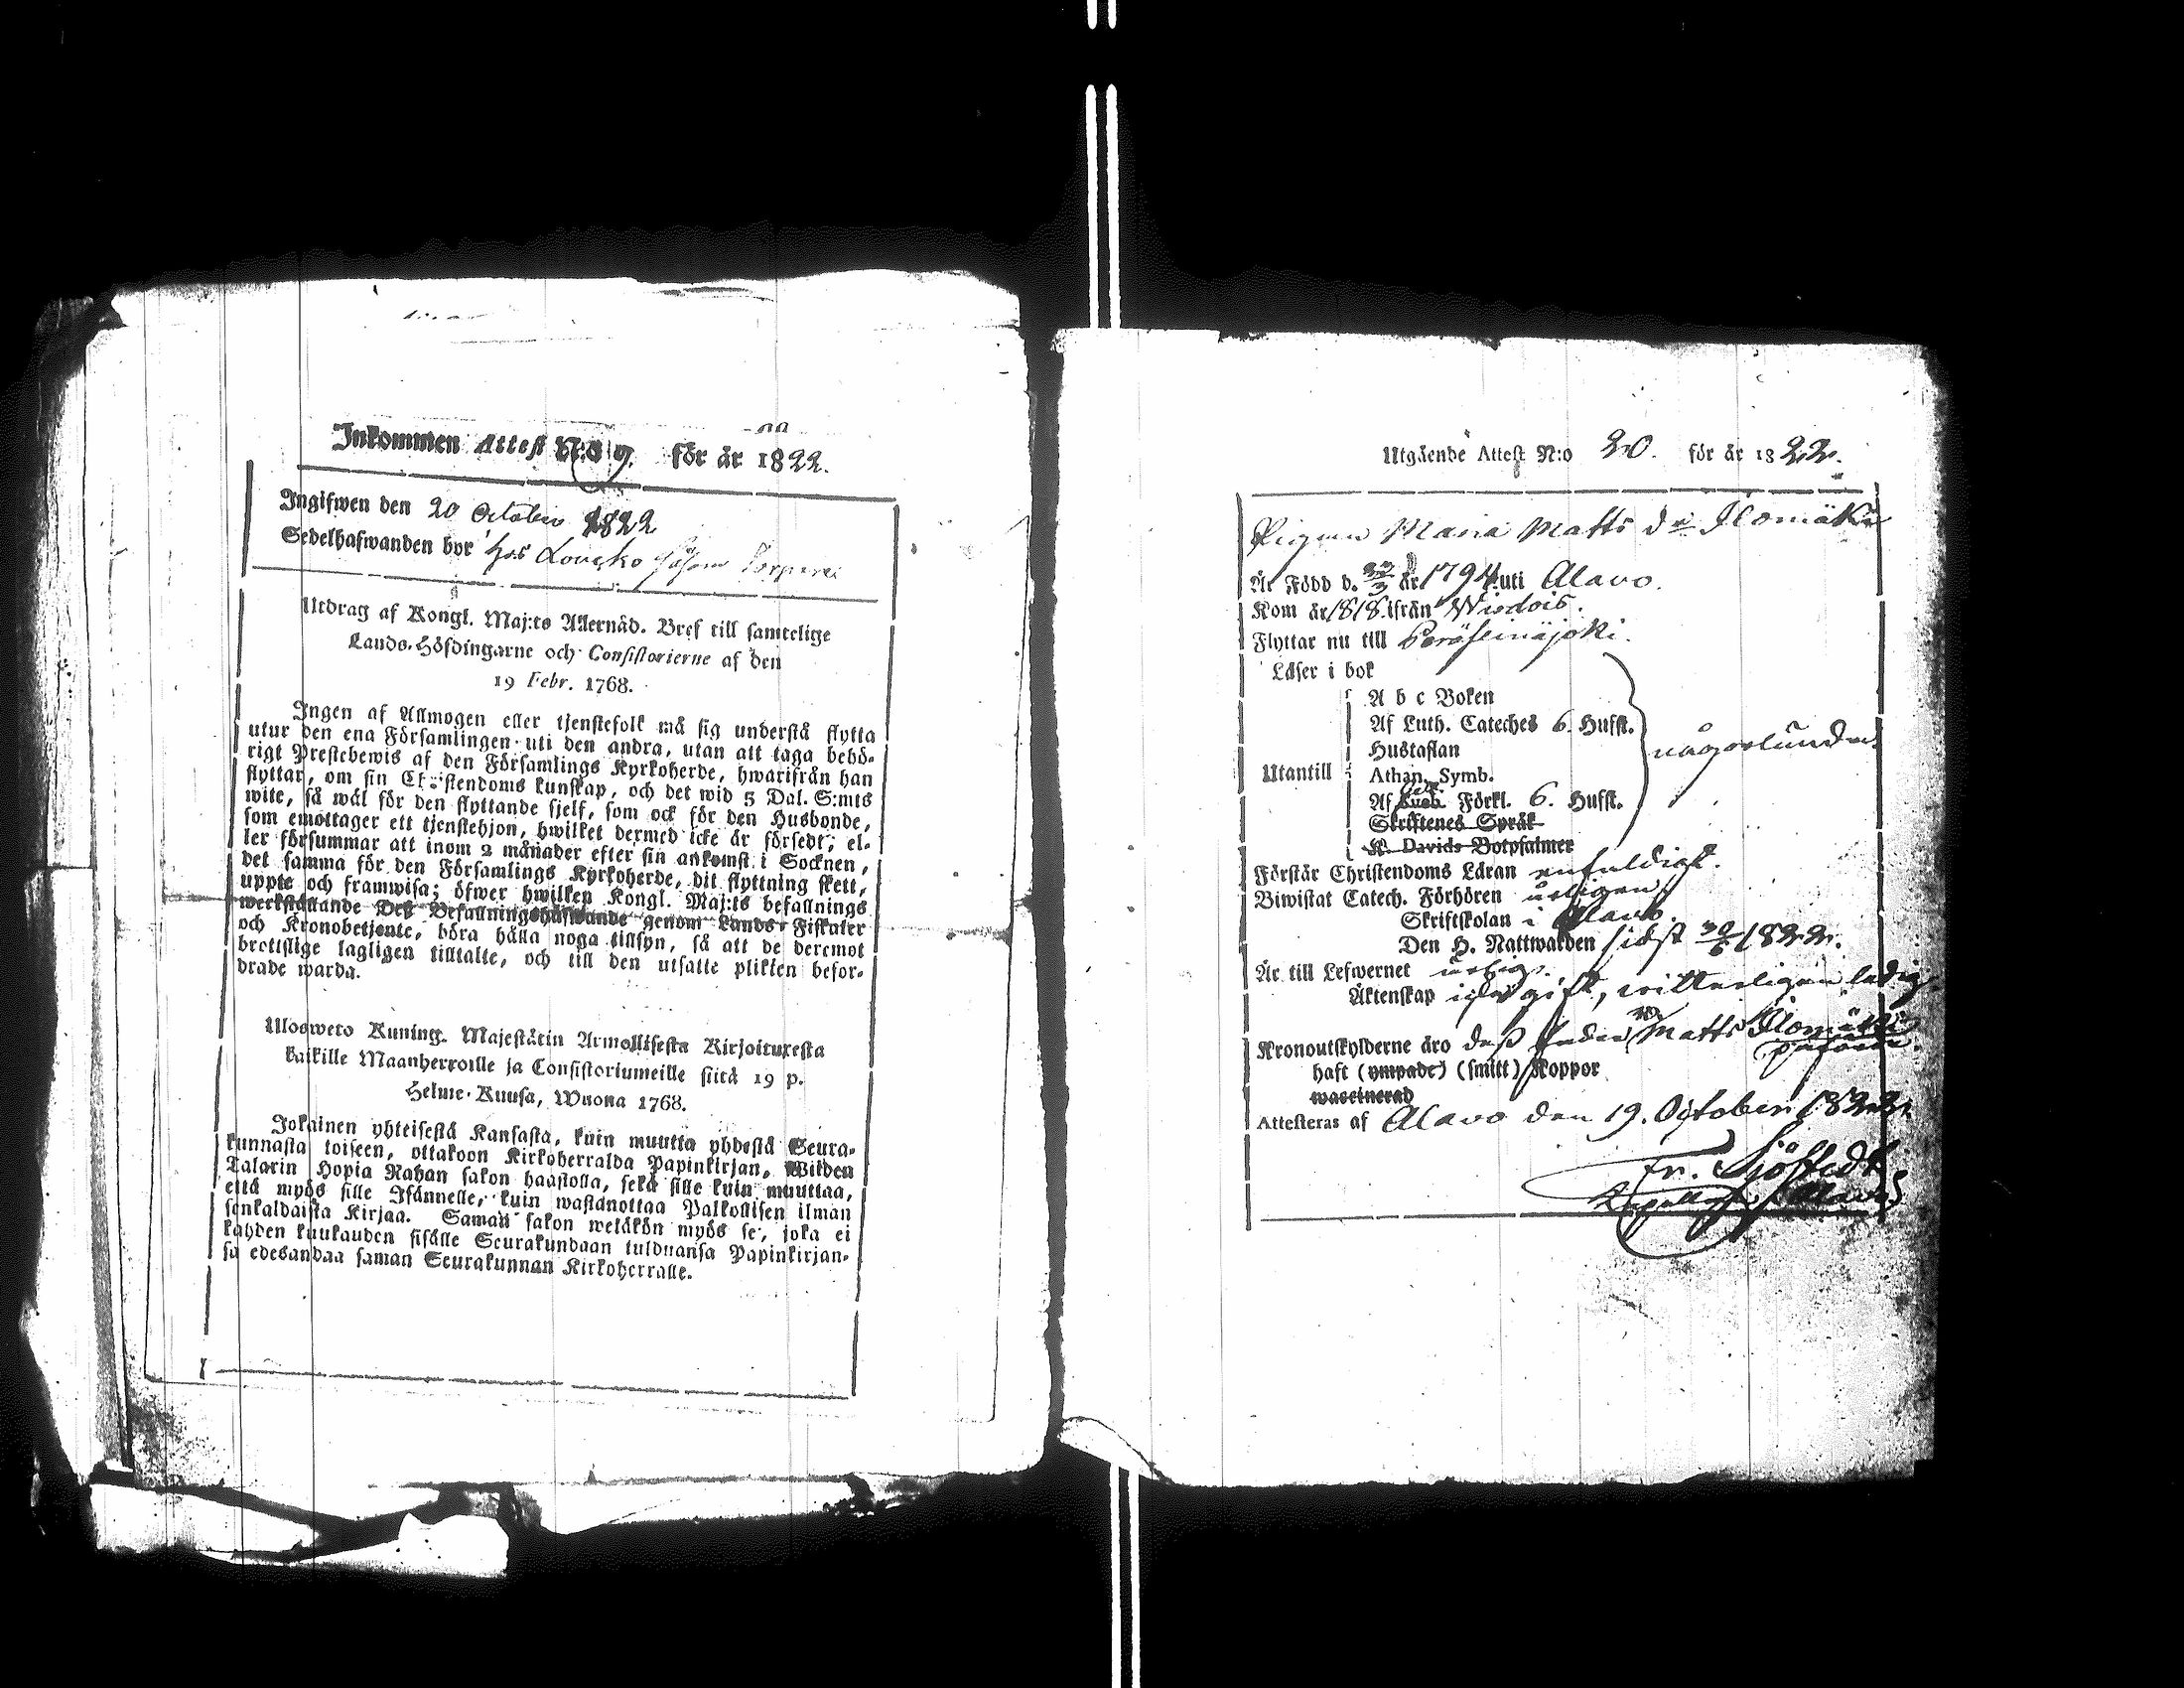 Inkommen Attest N:o 9. för år 1822.
Ingifwen den 20 October 1822
Sedelhafwanden bor hos Loucko såsom
Utdrag af Kongl. Maj:ts Allernåd. Bref till samtelige
Lands-Höfdingarne och Consistorierne af den
19 Febr. 1768.
Ingen af Allmogen eller tjenstefolk må sig understå flytta
utur den ena Församlingen uti den andra, utan att taga behö-
rigt Prestebewis af den Församlings Kyrkoherde, hwarifrån han
flyttar, om sin Christendoms kunskap, och det wid 5 Dal. S:mts
wite, så wäl för den flyttande sjelf, som ock för den Husbonde,
som emottager ett tjenstehjon, hwilket dermed icke är försedt; el-
ler försummar att inom 2 månader efter sin ankomst i Socknen,
det samma för den Församlings Kyrkoherde, dit flyttning skett,
uppte och framwisa; öfwer hwilken Kongl. Maj:ts befallnings
werkställande Deß Befallningshafwande genom Lands-Fiskaler
och Kronobetjente, böra hålla noga tillsyn, så att de deremot
brottslige lagligen tilltalte, och till den utsatte plikten befor-
drade warda.
Ulosweto Kuning. Majestätin Armollisesta Kirjoituxesta
kaikille Maanherroille ja Consistoriumeille siitä 19 p.
Helme-Kuusa, Wuona 1768.
Jokainen yhteisestä Kansasta, kuin muutta yhdestä Seura-
kunnasta toiseen, ottakoon Kirkoherralda Papinkirjan, Wiiden
Talarin Hopia Rahan sakon haastolla, sekä sille kuin muuttaa,
että myös sille Isännelle, kuin wastanottaa Palkollisen ilman
senkaldaista Kirjaa. Saman sakon wetäkön myös se, joka ei
kahden kuukauden sisälle Seurakundaan tulduansa Papinkirjan-
sa edesandaa saman Seurakunnan Kirkoherralle.
Utgående Attest N:o 20. för år 1822.
Pigan Maria Matts dr Ilomäki
Är Född d. 1794 uti Alavo.
Kom år 1818 ifrån Wirdois.
Flyttar nu till Peräseinäjoki.
Läser i bok
A b c Boken
Af Luth. Cateches 6. Hufst.
Hustaflan
Utantill Athan. Symb. någorlunda.
Af Sueb. Förkl. 6. Hufst.
Skriftenes Språk
K. Davids Botpsalmer
Förstår Christendoms Läran enfaldigt.
Biwistat Catech. Förhören årligen
Skriftskolan i Alavo.
Den H. Nattwarden sidst 1822.
Är till Lefwernet ärlig.
Äktenskap icke gift, witterligen ledig.
Kronoutskylderne äro deß Matts Ilomäki
påförde.
haft (ympade) (smitt) Koppor
waccinerad
Attesteras af Alavo den 19. October 1822.
Fr. Sjöstedt